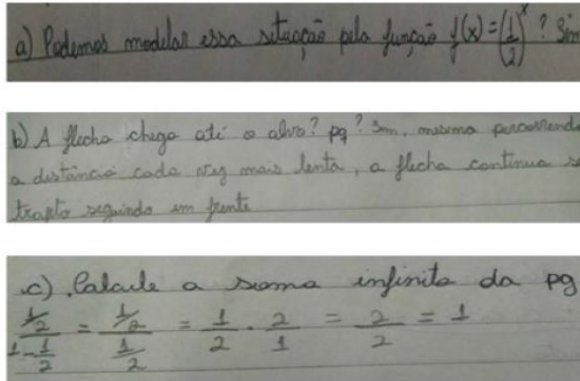 a) Podemos modelar essa situação pela função f(x) = (1/2)^x ? Sim
b) A flecha chega até o alvo? pq? Sim, mesmo percorrendo
a distância cada vez mais lenta, a flecha continua s
trajeto seguindo em frente
c) .Calcule a soma infinita da pg
(1/2)/(1 - 1/2) = (1/2)/(1/2) = 1/2 . 2/1 = 2/2 = 1